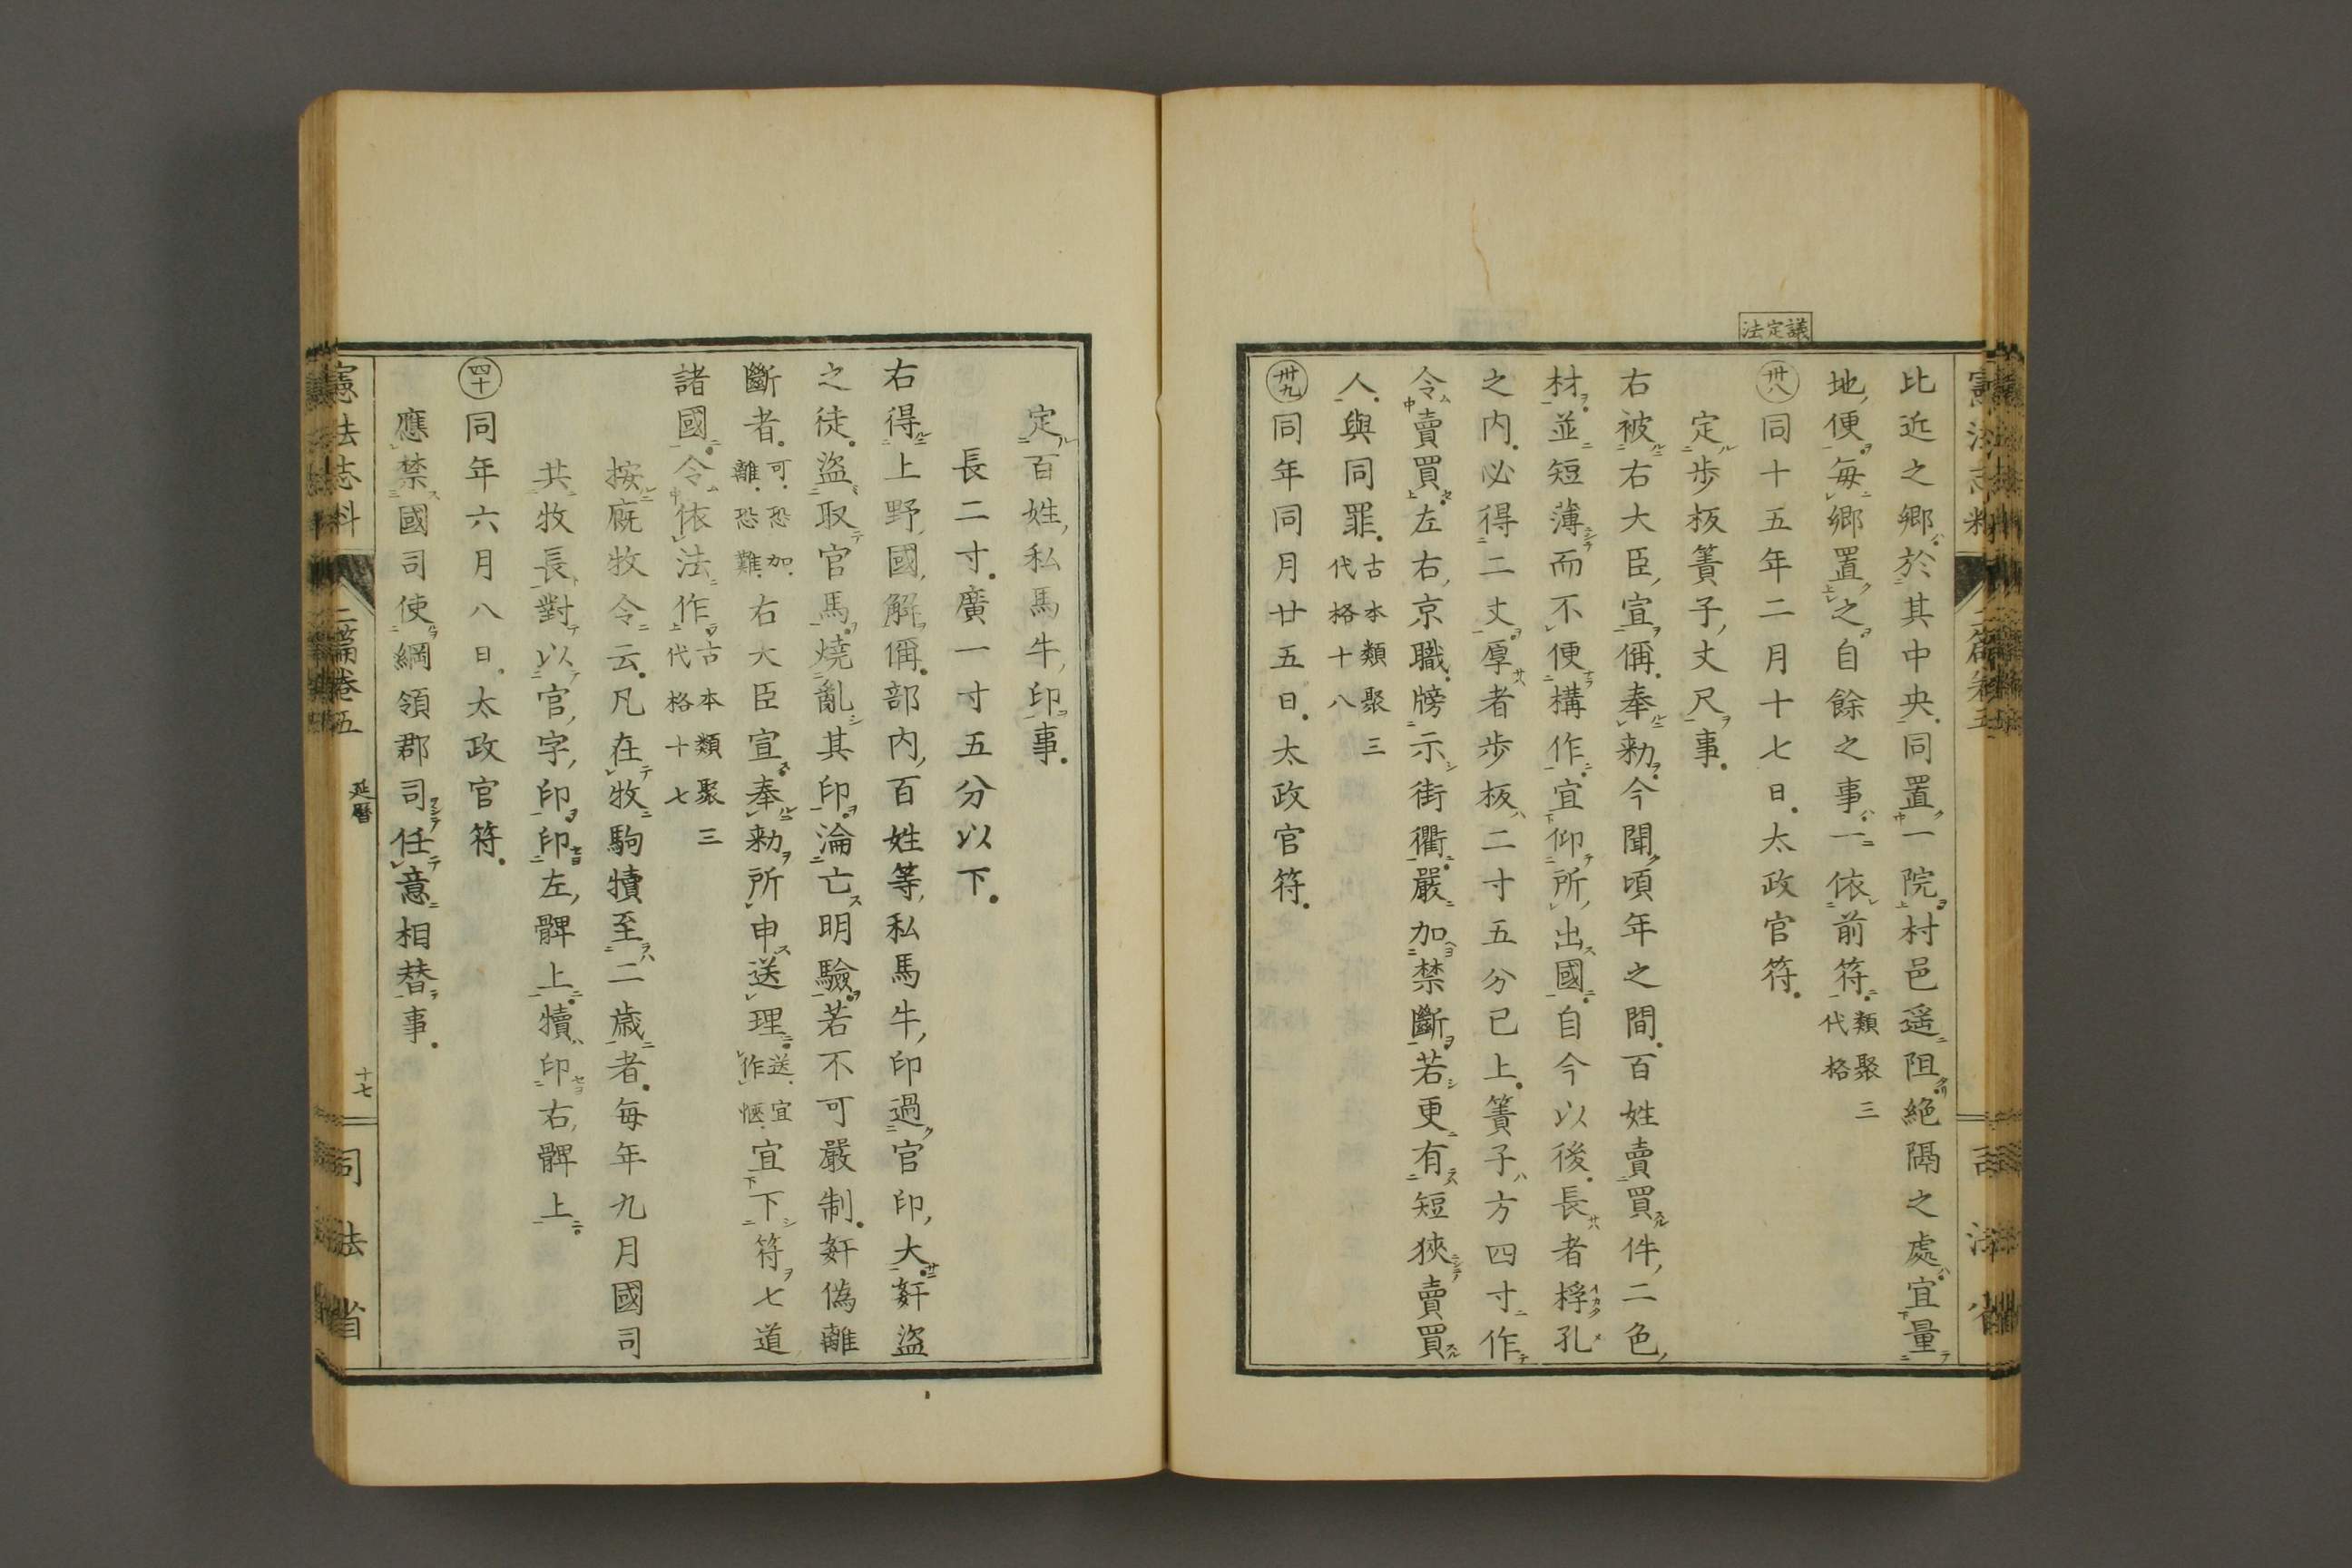 議定法
比近之鄉於其中央同置一院村邑遥阻絶隔之處宜量
地便每鄉置之自餘之事一依前符類聚三代格
㊳同十五年二月十七日太政官符
定步板簀子丈尺事
右被右大臣宣偁奉勅今聞頃年之間百姓賣買件二色
材並短薄而不便構作宜仰所出國自今以後長者桴孔
之内必得二丈厚者步板二寸五分已上簀子方四寸作
令賣買左右京職牓示街衢嚴加禁斷若更有短狹賣買
人與同罪古本類聚三代格十八
㊴同年同月廿五日太政官符
定百姓私馬牛印事
長二寸廣一寸五分以下
右得上野國解偁部内百姓等私馬牛印過官印大姧盜
之徒盜取官馬燒亂其印淪亡明驗若不可嚴制姧偽離
斷者可恐加離恐難右大臣宣奉勅所申送理送宜作愜宜下符七道
諸國令依法作古本類聚三代格十七
按廐牧令云凡在牧駒犢至二歲者每年九月國司
共牧長對以官字印印左髀上犢印右髀上
㊵同年六月八日太政官符
應禁國司使綱領郡司任意相替事
憲法志料 二篇卷五 延曆 十七 司法省